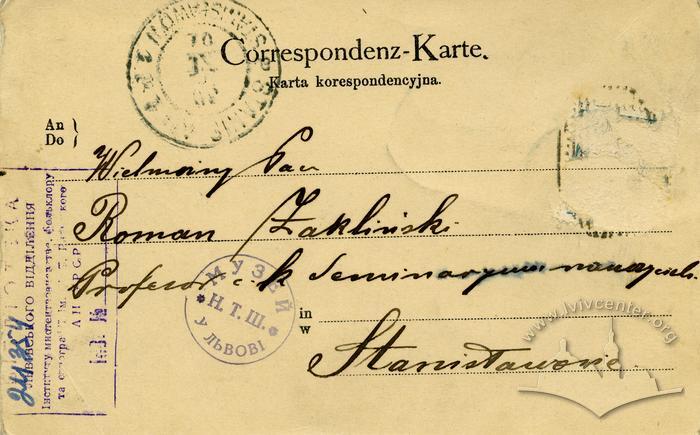 Correspondenz-Karte.
Karta korespondencyjna.
An
Do
Wielmożny Pan
Roman Zakliński
Profesor c. k. Seminaryum naucz.
in
w
Stanisławowie.
МУЗЕЙ
* Н. Т. Ш. *
у ЛЬВОВІ
ЛЬВІВСЬКОГО ВІДДІЛЕННЯ
Інституту мистецтвознавства, фольклору
та етнографії ім.
Інв. №
www.lvivcenter.org